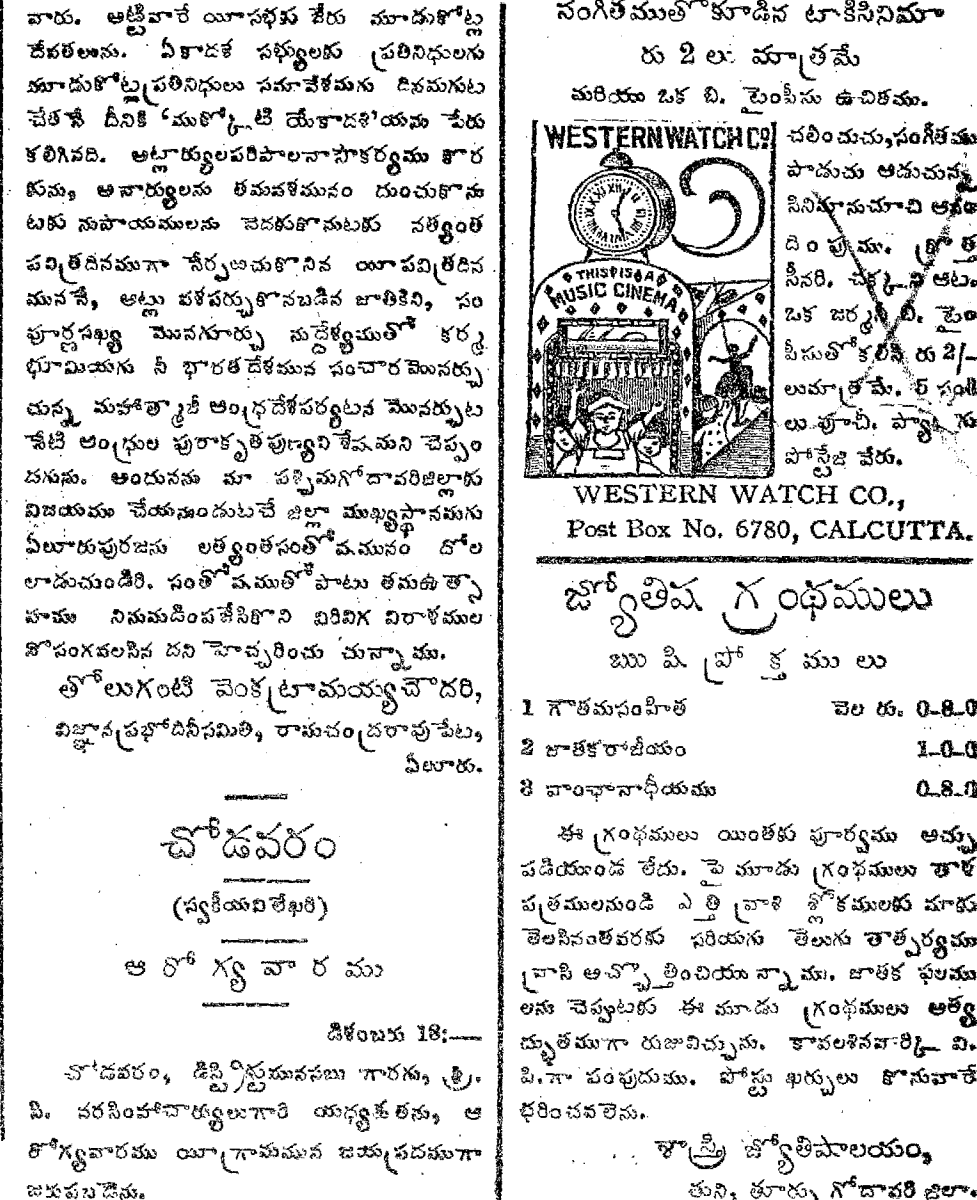 వారు. అట్టివారే యీసభకు జేరు మూడుకోట్ల
దేవతలును. ఏకాదశ సభ్యులకు ప్రతినిధులగు
మూడుకోట్ల ప్రతినిధులు సమావేశమగు దినమగుట
చేతనే దీనికి ‘ముక్కోటి యేకాదశి’యను పేరు
కలిగినది. అట్లార్యులపరిపాలనాసౌకర్యము కొర
కును, అనార్యులను తమవశమునం దుంచుకొను
టకు నుపాయములను వెదకుకొనుటకు నత్యంత
పవిత్రదినముగా నేర్పఱచుకొనిన యీపవిత్రదిన
ముననే, అట్లు వశపర్చుకొనబడిన జాతికిని, సం
పూర్ణసఖ్య మొనగూర్చు నుద్దేశ్యముతో కర్మ
భూమియగు నీ భారతదేశమున సంచారమొనర్చు
చున్న మహాత్మాజీ ఆంధ్రదేశపర్యటన మొనర్చుట
నేటి ఆంధ్రుల పురాకృతపుణ్యవిశేషమని చెప్పం
దగును. అందునను మా పశ్చిమగోదావరిజిల్లాకు
విజయము చేయనుండుటచే జిల్లా ముఖ్యస్థానమగు
ఏలూరుపురజను లత్యంతసంతోషమునం దోల
లాడుచుండిరి. సంతోషముతోపాటు తమఉత్సా
హము నినుమడింపజేసికొని విరివిగ విరాళముల
నొసంగవలసిన దని హెచ్చరించు చున్నాము.
తోలుగంటి వెంకట్రామయ్యచౌదరి,
విజ్ఞానప్రభోదినీసమితి, రామచంద్రరావుపేట,
ఏలూరు.
చోడవరం
(స్వకీయవిలేఖరి)
ఆ రో గ్య వా ర ము
డిశంబరు 18:—
చోడవరం, డిస్ట్రిక్టుమునసబు గారగు, శ్రీ.
పి. నరసింహాచార్యులుగారి యధ్యక్షతను, ఆ
రోగ్యవారము యీగ్రామమున జయప్రదముగా
జరుపబడెను.
సంగీతముతోకూడిన టాకీసినిమా
రు 2 లు మాత్రమే
మరియు ఒక బి. టైంపీసు ఉచితము.
WESTERN WATCH CO
THIS IS A
MUSIC CINEMA
చలించుచు, సంగీతము
పాడుచు ఆడుచున్న
సినిమానుచూచి ఆనం
దిం పుము. క్రొత్త
సీనరి. చక్కని ఆట.
ఒక జర్మనీ బి. టైం
పీసుతోకలిసి రు 2/–
లుమాత్రమే. 5 సంల
లు పూచీ. ప్యాకిగు
పోస్టేజి వేరు.
WESTERN WATCH CO.,
Post Box No. 6780, CALCUTTA.
జ్యోతిష గ్రంథములు
ఋ షి ప్రో క్త ము లు
1 గౌతమసంహిత వెల రు. 0-8-0
2 జాతకరాజీయం 1-0-0
3 వాంఛానాధీయము 0-8-0
ఈ గ్రంథములు యింతకు పూర్వము అచ్చు
పడియుండ లేదు. పై మూడు గ్రంథములు తాళ
పత్రములనుండి ఎత్తి వ్రాశి శ్లోకములకు మాకు
తెలసినంతవరకు సరియగు తెలుగు తాత్పర్యము
వ్రాసి అచ్చొత్తించియు న్నాము. జాతక ఫలము
లను చెప్పుటకు ఈ మూడు గ్రంథములు అత్య
ద్భుతముగా రుజువిచ్చును. కావలశినవార్కి వి.
పి.గా పంపుదుము. పోస్టు ఖర్చులు కొనువారే
భరించవలెను.
శాస్త్రి జ్యోతిషాలయం,
తుని, తూర్పు గోదావరి జిల్లా.